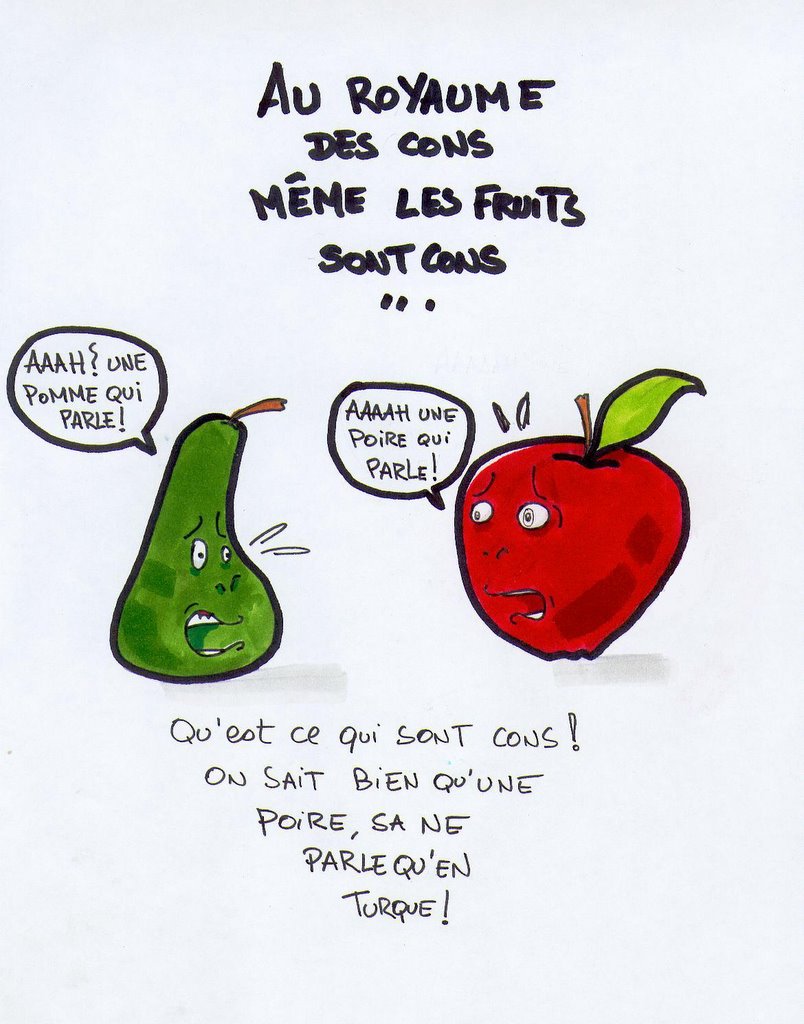 AU ROYAUME
DES CONS
MÊME LES FRUITS
SONT CONS
...
AAAH? UNE
POMME QUI
PARLE!
AAAAH UNE
POIRE QUI
PARLE!
QU'EST CE QUI SONT CONS!
ON SAIT BIEN QU'UNE
POIRE, SA NE
PARLE QU'EN
TURQUE!